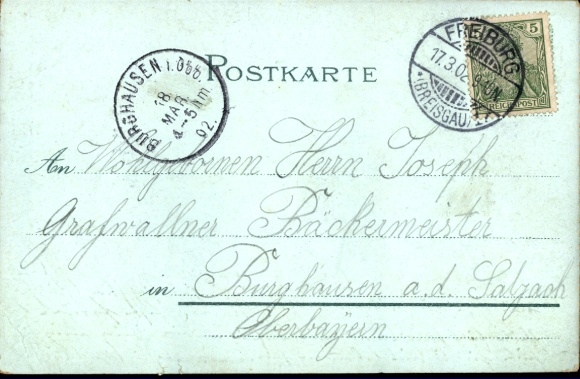 POSTKARTE
BURGHAUSEN i. Obb.
18
MAR
4-5 Nm
02.
FREIBURG
17.3.02.
*(BREISGAU)*
5
REICHSPOST
An Wohlgebornen Herrn Joseph
Grafwallner Bäckermeister
in Burghausen a. d. Salzach
Oberbayern